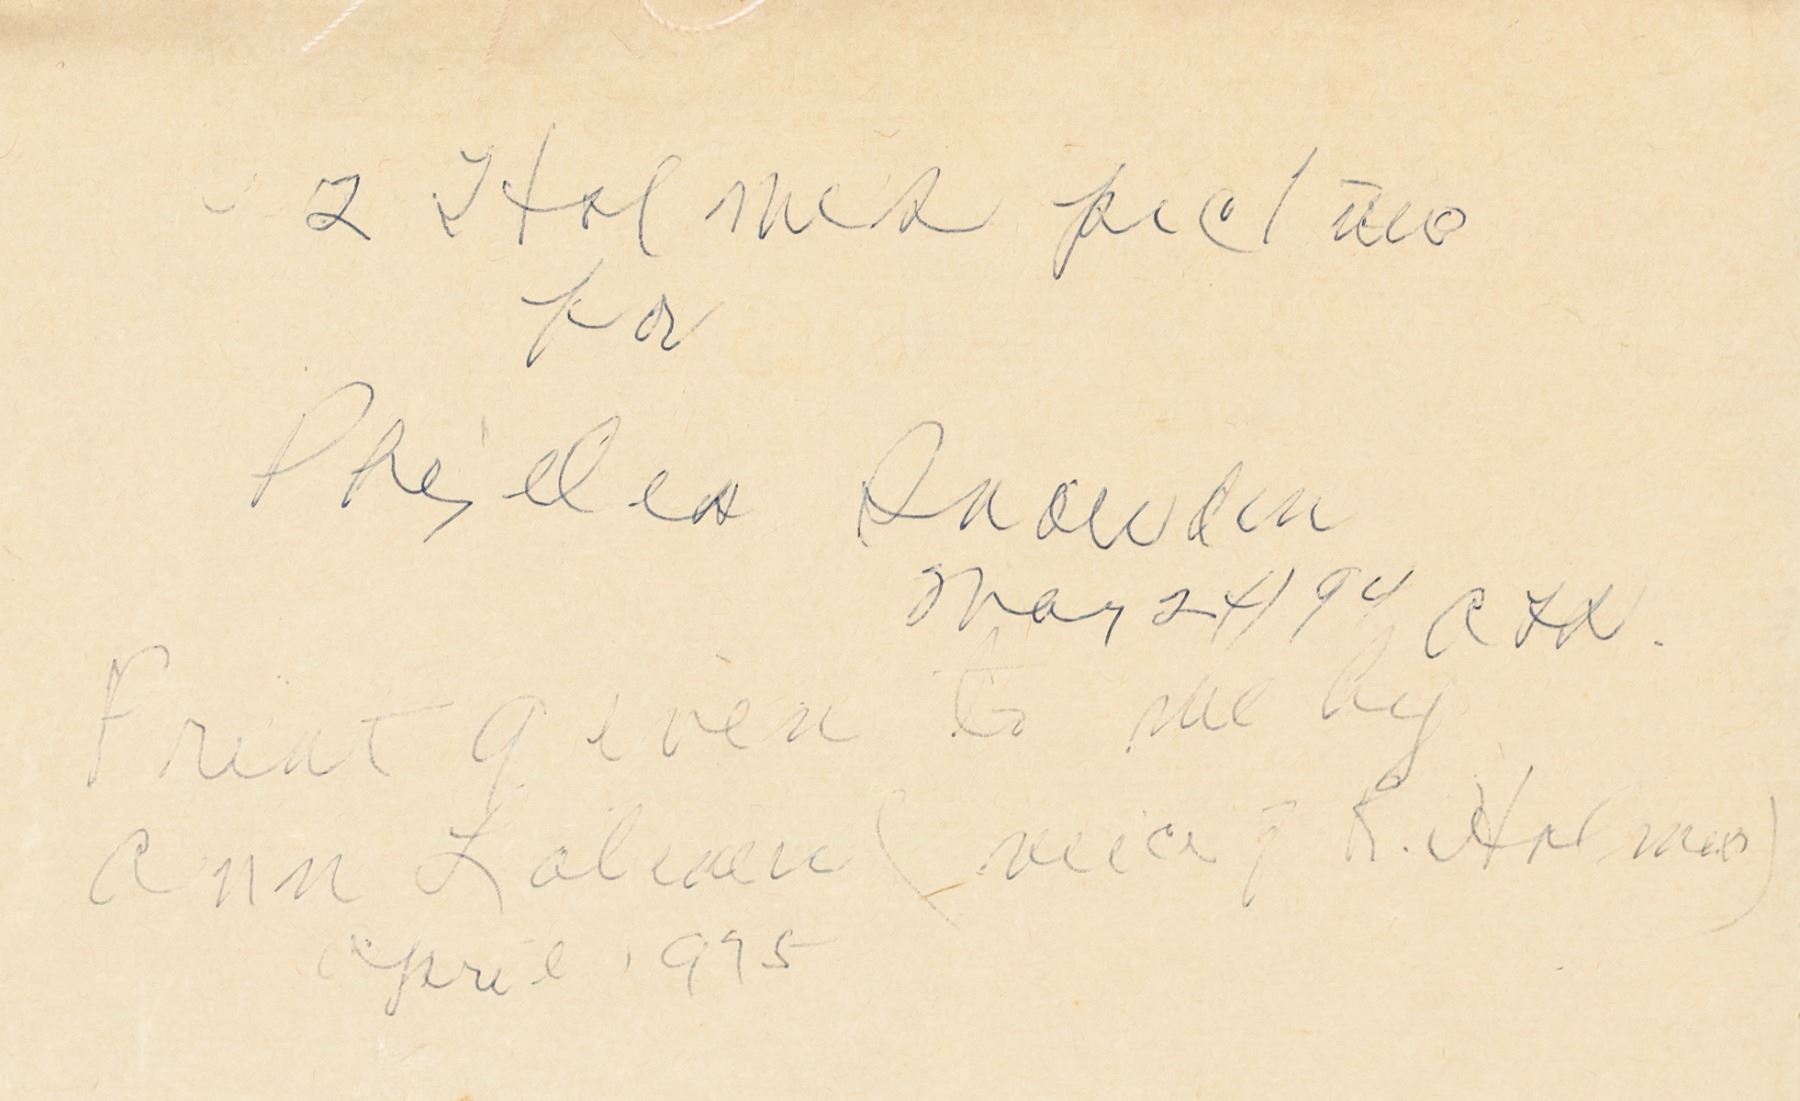 2 Holmes pictures
for
Phyllis Snowden
May 24 94
Print given to me by
Ann (niece of R. Holmes)
April 1975